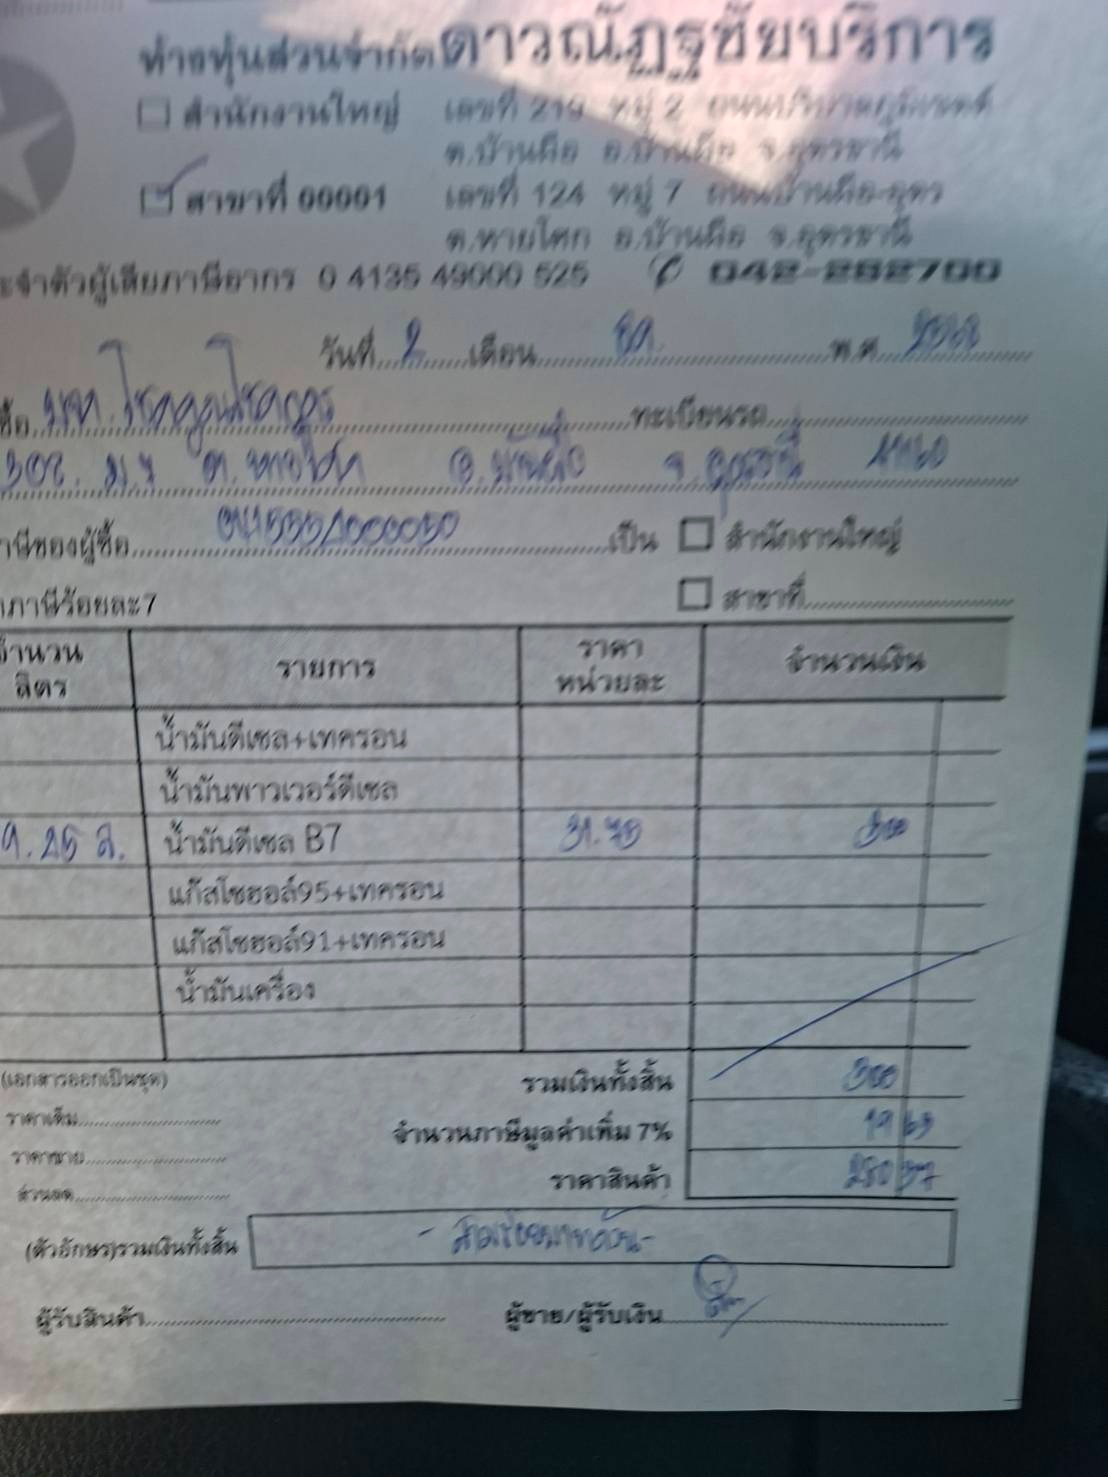 ห้างหุ้นส่วนจำกัดดาวณัฏฐชัยบริการ
สำนักงานใหญ่ เลขที่ 219 หมู่ 2
ต.บ้านผือ อ.บ้านผือ จ.อุดรธานี
สาขาที่ 00001 เลขที่ 124 หมู่ 7 ถนนบ้านผือ-อุดร
ต.หายโศก อ.บ้านผือ จ.อุดรธานี
ะจำตัวผู้เสียภาษีอากร 0 4135 49000 525 042-282700
วันที่ 2 เดือน พ.ศ. 2568
ชื่อ ทะเบียนรถ
ต. หายโศก อ. บ้านผือ จ. อุดรธานี 41160
าษีของผู้ซื้อ เป็น สำนักงานใหญ่
าภาษีร้อยละ7 สาขาที่
จำนวนลิตร รายการ ราคาหน่วยละ จำนวนเงิน
น้ำมันดีเซล+เทครอน
น้ำมันพาวเวอร์ดีเซล
น้ำมันดีเซล B7 300
แก๊สโซฮอล์95+เทครอน
แก๊สโซฮอล์91+เทครอน
น้ำมันเครื่อง
(เอกสารออกเป็นชุด) รวมเงินทั้งสิ้น 300
ราคาเต็ม
จำนวนภาษีมูลค่าเพิ่ม 7% 19 63
ราคาขาย
ราคาสินค้า 280 37
ส่วนลด
(ตัวอักษร)รวมเงินทั้งสิ้น - สามร้อยบาทถ้วน -
ผู้รับสินค้า ผู้ขาย/ผู้รับเงิน